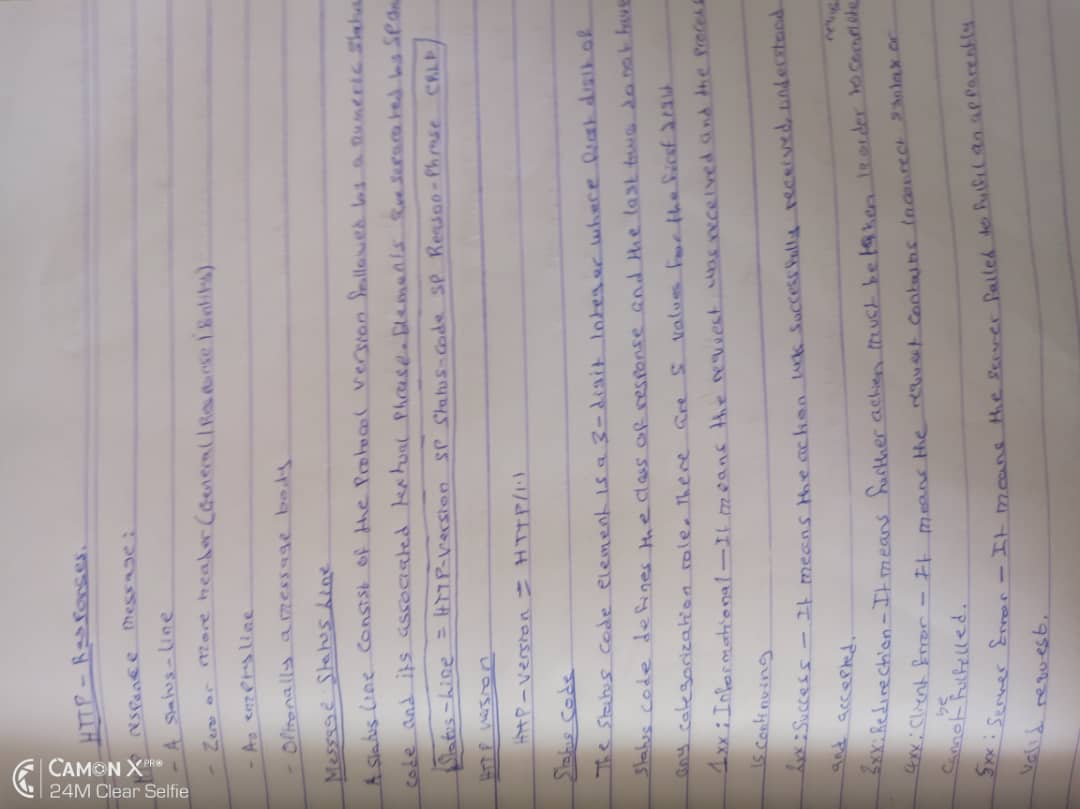 CAMON X PRO
24M Clear Selfie
HTTP - Responses.
response message:
- A status-line
- Zero or more header (General/Response/Entity)
- An empty line
- Optionally a message body
Message Status Line
A status line consist of the Protocol version followed by a numeric status
code and its associated textual phrase. Elements are separated by span
Status-Line = HTTP-Version SP Status-code SP Reason-Phrase CRLF
HTTP version
HTTP-version = HTTP/1.1
Status Code
The status code element is a 3-digit integer where first digit of
status code defines the class of response and the last two do not have
any categorization role. There are 5 values for the first digit
1xx: Informational - It means the request was received and the process
is continuing
2xx: Success - It means the action was successfully received, understood
and accepted.
3xx: Redirection - It means further action must be taken in order to complete
4xx: Client Error - It means the request contains incorrect syntax or
cannot be fulfilled.
5xx: Server Error - It means the server failed to fulfil an apparently
valid request.